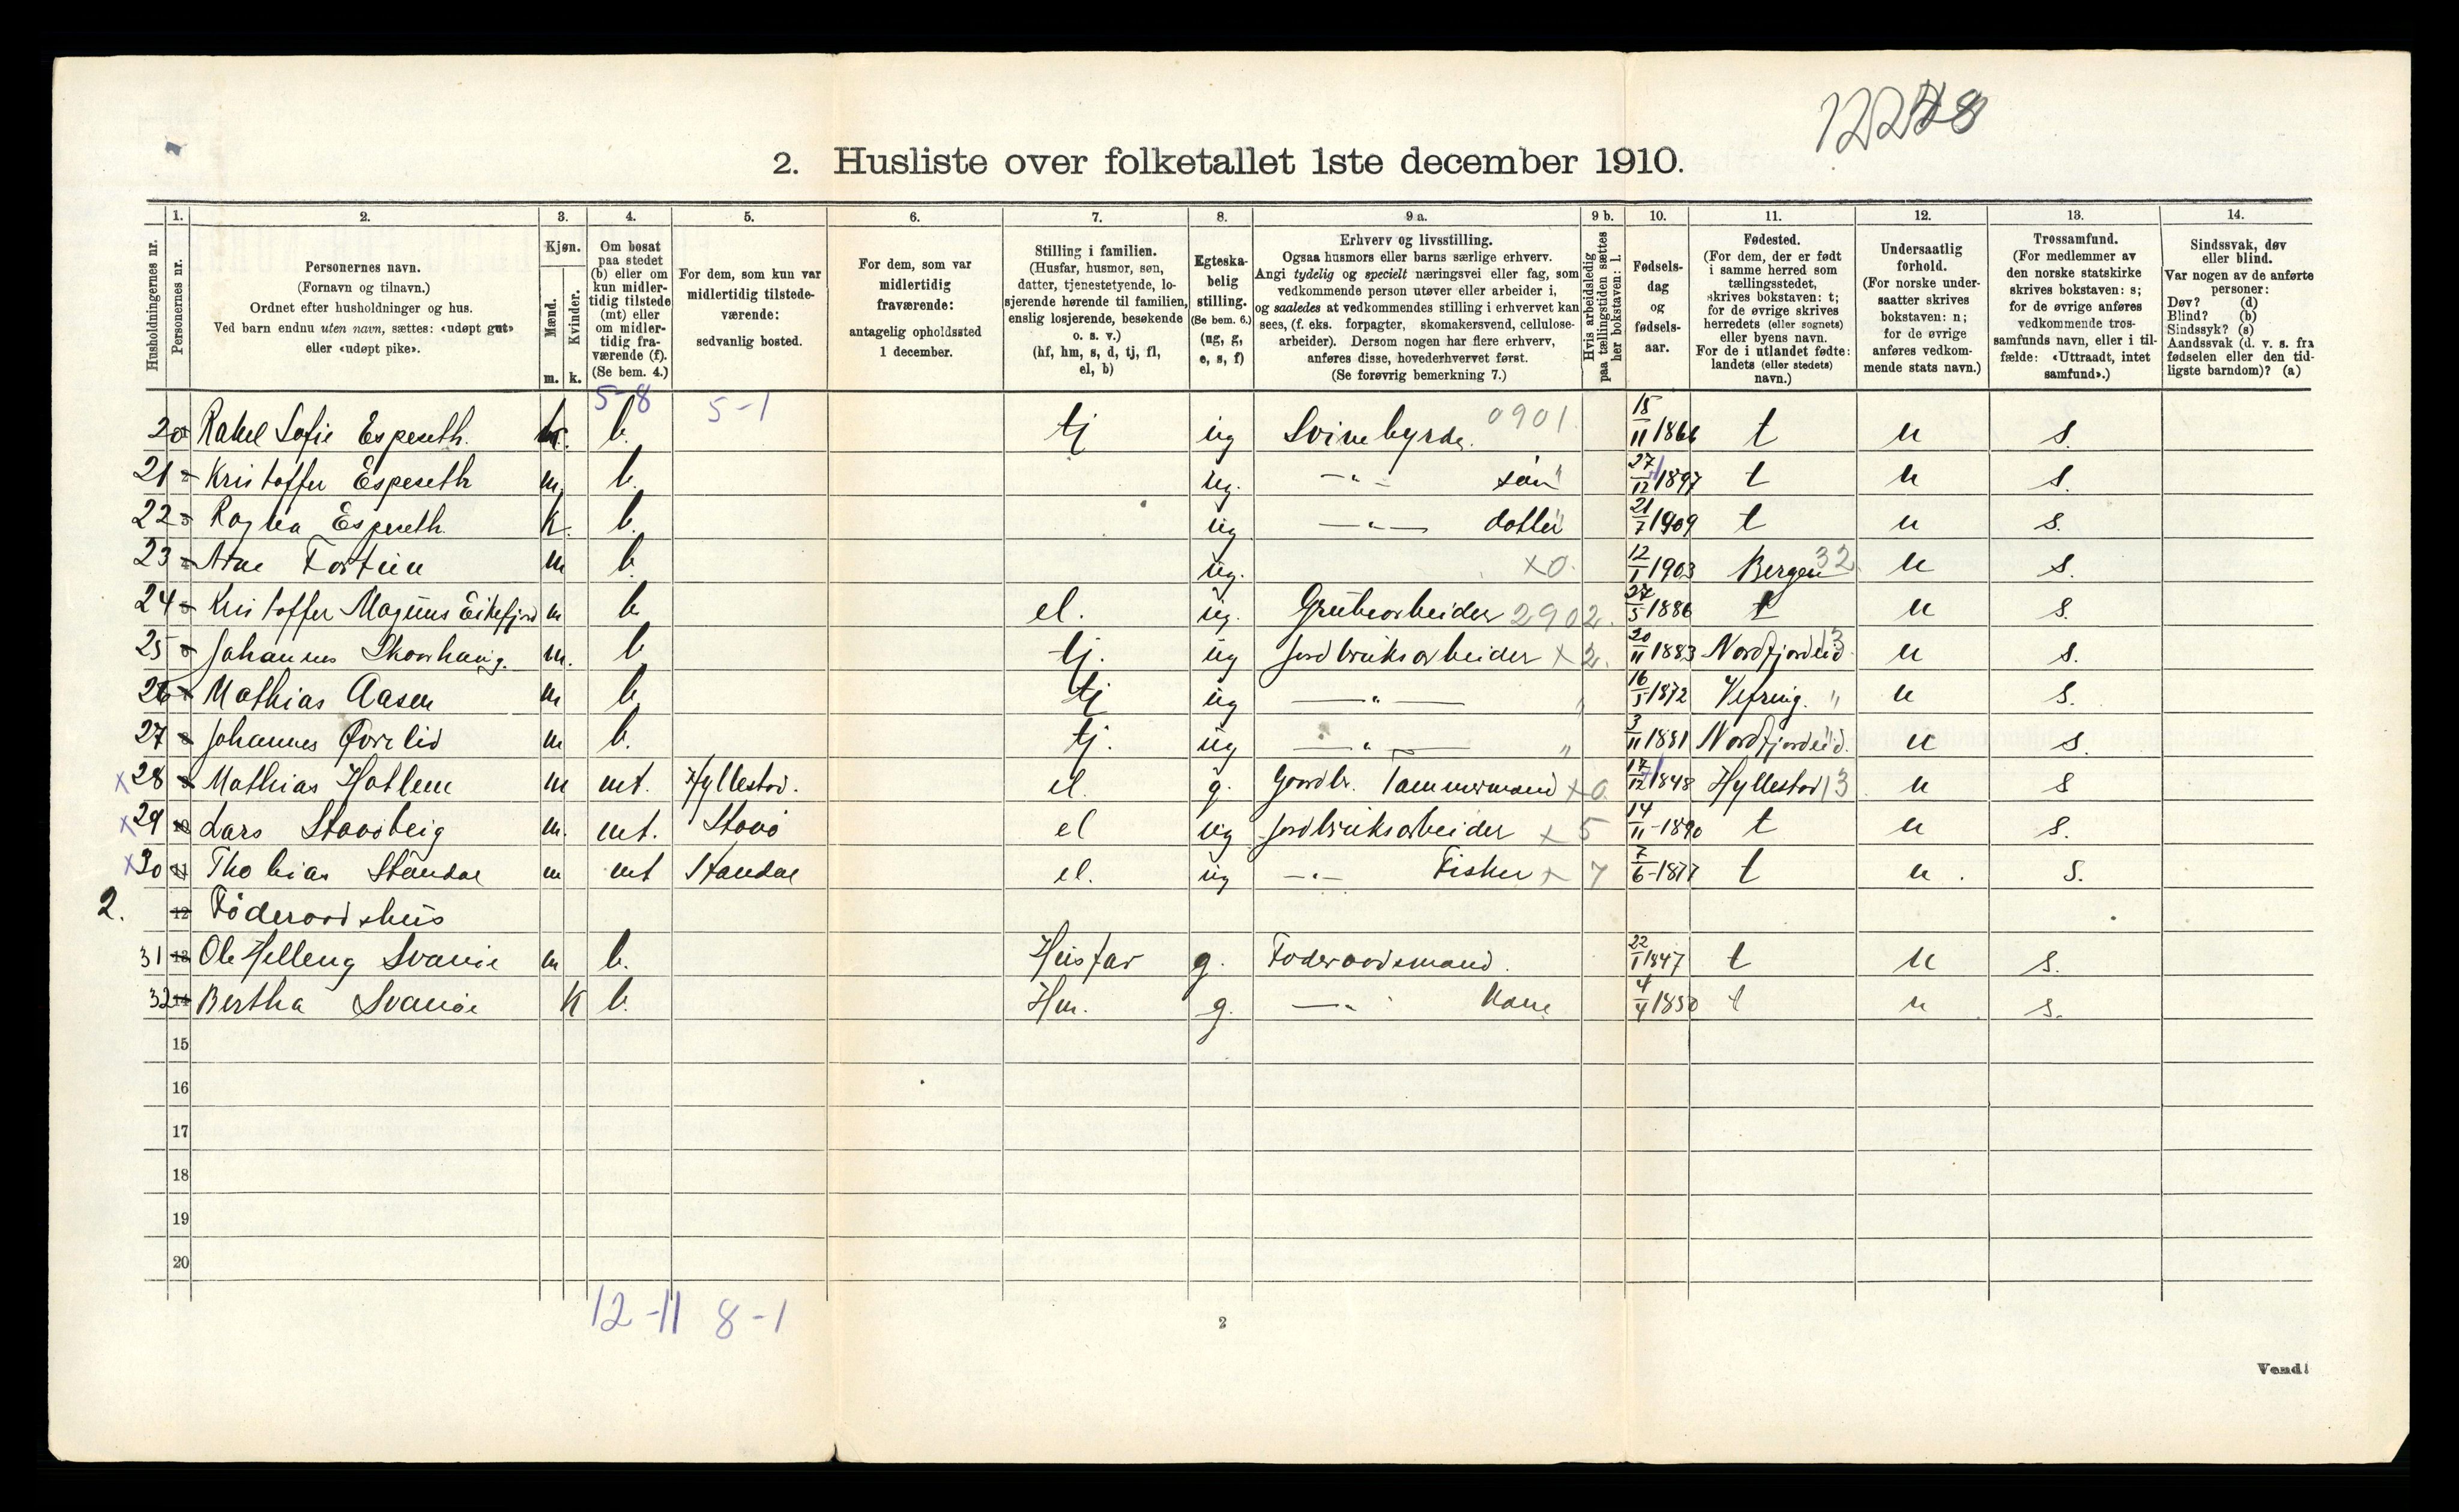 12248
2. Husliste over folketallet 1ste december 1910.
Husholdningernes nr.
1. Personernes nr.
2. Personernes navn. (Fornavn og tilnavn.) Ordnet efter husholdninger og hus. Ved barn endnu uten navn, sættes: «udøpt gut» eller «udøpt pike».
3. Kjøn. Mænd. m. Kvinder. k.
4. Om bosat paa stedet (b) eller om kun midler-tidig tilstede (mt) eller om midler-tidig fra-værende (f). (Se bem. 4.)
5. For dem, som kun var midlertidig tilstede-værende: sedvanlig bosted.
6. For dem, som var midlertidig fraværende: antagelig opholdssted 1 december.
7. Stilling i familien. (Husfar, husmor, søn, datter, tjenestetyende, lo-sjerende hørende til familien, enslig losjerende, besøkende o. s. v.) (hf, hm, s, d, tj, fl, el, b)
8. Egteska-belig stilling. (Se bem. 6.) (ug, g, e, s, f)
9 a. Erhverv og livsstilling. Ogsaa husmors eller barns særlige erhverv. Angi tydelig og specielt næringsvei eller fag, som vedkommende person utøver eller arbeider i, og saaledes at vedkommendes stilling i erhvervet kan sees, (f. eks. forpagter, skomakersvend, cellulose-arbeider). Dersom nogen har flere erhverv, anføres disse, hovederhvervet først. (Se forøvrig bemerkning 7.)
9 b. Hvis arbeidsledig paa tællingstiden sættes her bokstaven: l.
10. Fødsels-dag og fødsels-aar.
11. Fødested. (For dem, der er født i samme herred som tællingsstedet, skrives bokstaven: t; for de øvrige skrives herredets (eller sognets) eller byens navn. For de i utlandet fødte: landets (eller stedets) navn.)
12. Undersaatlig forhold. (For norske under-saatter skrives bokstaven: n; for de øvrige anføres vedkom-mende stats navn.)
13. Trossamfund. (For medlemmer av den norske statskirke skrives bokstaven: s; for de øvrige anføres vedkommende tros-samfunds navn, eller i til-fælde: «Uttraadt, intet samfund».)
14. Sindssvak, døv eller blind. Var nogen av de anførte personer: Døv? (d) Blind? (b) Sindssyk? (s) Aandssvak (d. v. s. fra fødselen eller den tid-ligste barndom)? (a)
5-8 5-1
20 Rakel Sofie Espeseth. k. b. tj ug Svinebyrde. 0901 15/11 1866 t n s.
21 Kristoffer Espeseth m. b. ug. -"- søn 27/12 1897 t n s.
22 Ragna Espeseth. K. b. ug -"- datter 21/7 1909 t n s.
23 Arne Fortun m b. ug. x0. 12/1 1903 Bergen 32 n s.
24 Kristoffer Magnus Eikefjord m b el. ug. Grubearbeider 2902. 27/5 1886 t n s.
25 Johannes Skorhaug. m. b tj. ug Jordbruksarbeider x 2. 20/11 1883 Nordfjordeid 13 n s.
26 Mathias Aasen m b. tj ug -"- " 16/5 1872 Vefring. " n s.
27 Johannes Øvrelid m b. tj. ug -"- " 3/11 1891 Nordfjordeid. n s.
x 28 Mathias Hatlem m mt. Hyllestad. el. g. Gaardbr. Tømmermand x0 17/12 1848 Hyllestad 13 n s
x 29 Lars Stavøbeig m. mt. Stavø el ug Jordbruksarbeider x 5 14/11-1890 t n s.
x 30 Thobias Standal m mt Standal el. ug -"- Fisker x 7 7/6-1877 t n. s.
2. 12 Føderaadshus
31 13 Ole Helleng Svanøe m b. Husfar g. Føderaadsmand. 22/1 1847 t n s.
32 14 Bertha Svanøe K b. Hm. g. -"- Kone 4/4 1850 t n s.
15
16
17
18
19
20
12-11 8-1
2
Vend!